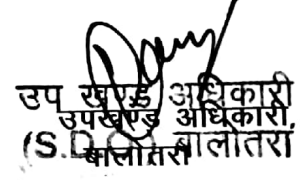 उप खण्ड अधिकारी
उपखण्ड अधिकारी,
(S.D.O.) बालोतरा
बालोतरा